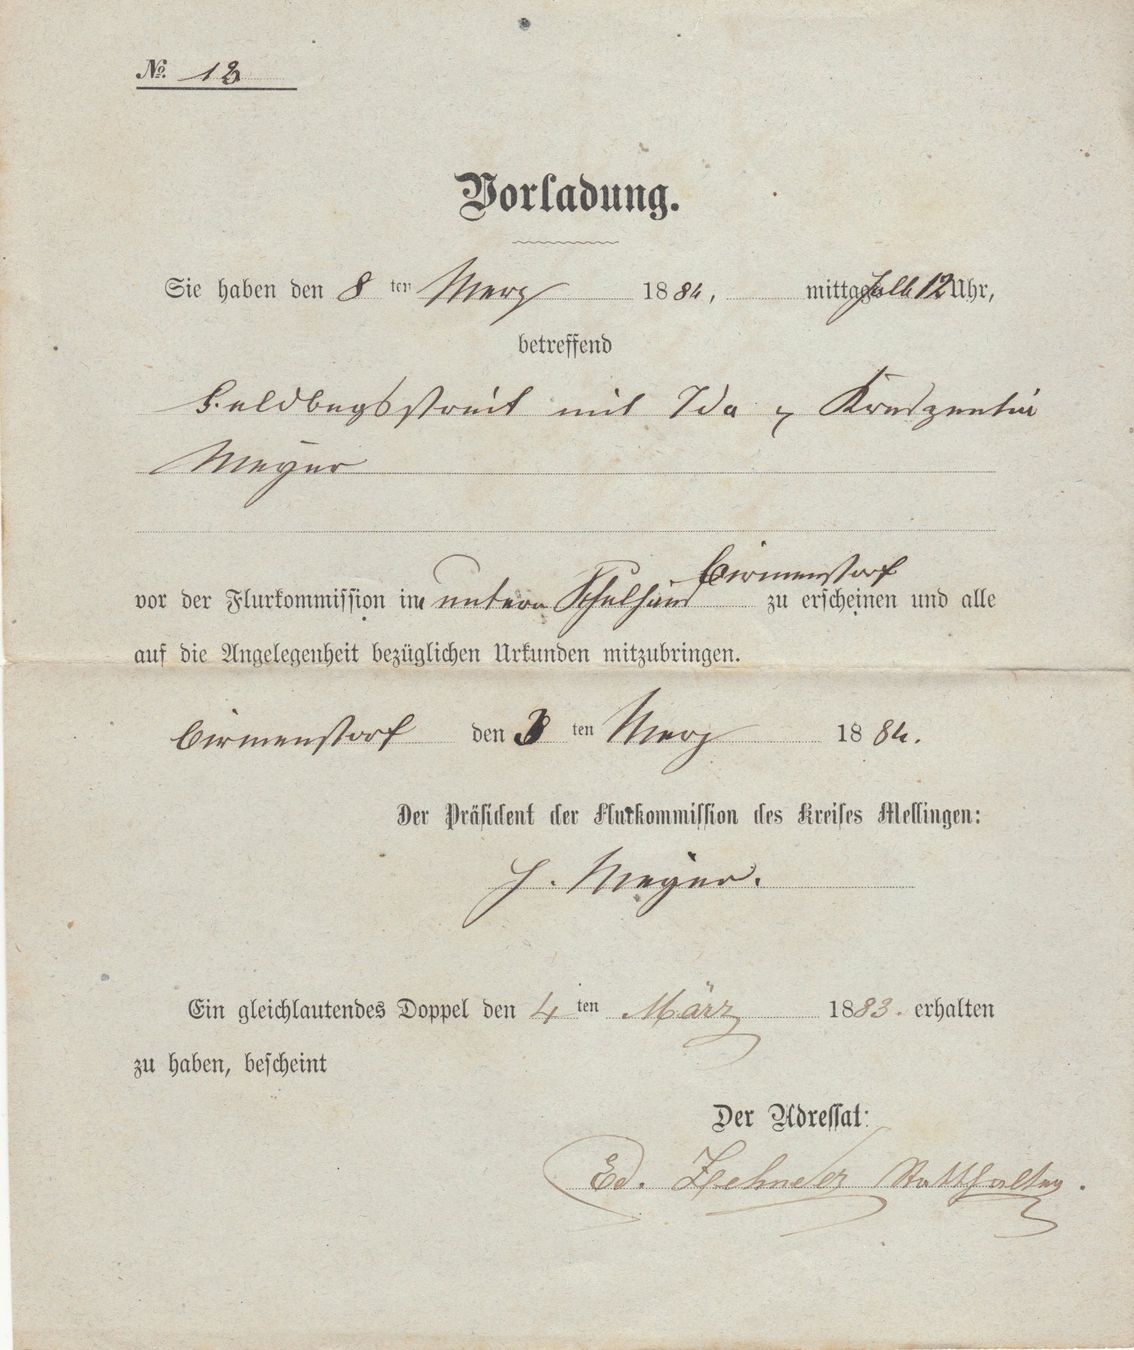 No. 13
Vorladung.
Sie haben den 8 ten Merz 1884, mittags halb 12 Uhr,
betreffend
streit mit Ida & Kreszentia
Meyer
Birmenstorf
vor der Flurkommission im untern Schulhaus zu erscheinen und alle
auf die Angelegenheit bezüglichen Urkunden mitzubringen.
Birmenstorf den 3 ten Merz 1884.
Der Präsident der Flurkommission des Kreises Mellingen:
J. Meyer.
Ein gleichlautendes Doppel den 4 ten März 1883. erhalten
zu haben, bescheint
Der Adressat:
Ed. Zehnder Statthalter.